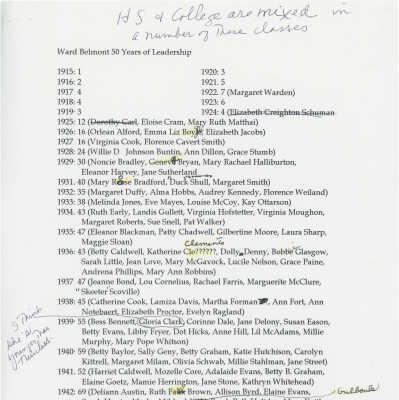 HS & College are mixed in
a number of these classes
Ward Belmont 50 Years of Leadership
1915: 1 1920: 3
1916: 2 1921: 5
1917 4 1922: 7 (Margaret Warden)
1918: 4 1923: 6
1919: 3 1924: 4 (Elizabeth Creighton Schuman
1925: 12 (Dorothy Carl, Eloise Cram, Mary Ruth Matthai)
1926: 16 (Orlean Alford, Emma Liz Boy, Elizabeth Jacobs)
1927: 16 (Virginia Cook, Florence Cavert Smith)
1928: 24 (Willie D Johnson Buntin, Ann Dillon, Grace Stumb)
1929: 30 (Noncie Bradley, Genev Bryan, Mary Rachael Halliburton,
Eleanor Harvey, Jane Sutherland
1931: 40 (Mary Rose Bradford, Duck Shull, Margaret Smith)
1932: 35 (Margaret Duffy, Alma Hobbs, Audrey Kennedy, Florence Weiland)
1933: 38 (Melinda Jones, Eve Mayes, Louise McCoy, Kay Ottarson)
1934: 43 (Ruth Early, Landis Gullett, Virginia Hofstetter, Virginia Moughon,
Margaret Roberts, Sue Snell, Pat Walker)
1935: 47 (Eleanor Blackman, Patty Chadwell, Gilbertine Moore, Laura Sharp,
Maggie Sloan)
Clements
1936: 43 (Betty Caldwell, Katherine Cle??????, Dolly Denny, Bobbie Glasgow,
Sarah Little, Jean Love, Mary McGavock, Lucile Nelson, Grace Paine,
Andrena Phillips, Mary Ann Robbins)
1937 47 (Jeanne Bond, Lou Cornelius, Rachael Farris, Marguerite McClure,
"Skeeter Scoville)
1938: 45 (Catherine Cook, Lamiza Davis, Martha Forman, Ann Fort, Ann
Notebaert, Elizabeth Proctor, Evelyn Ragland)
I think
1939: 55 (Bess Bennett, Gloria Clark, Corinne Dale, Jane Delony, Susan Eason,
Betty Evans, Libby Fryer, Dot Hicks, Anne Hill, Lil McAdams, Millie
Murphy, Mary Pope Whitson)
1940: 59 (Betty Baylor, Sally Geny, Betty Graham, Katie Hutchison, Carolyn
Kittrell, Margaret Milam, Olivia Schwab, Millie Stahlman, Jane Street)
1941: 52 (Harriet Caldwell, Mozelle Core, Adalaide Evans, Betty B. Graham,
Elaine Goetz, Mamie Herrington, Jane Stone, Kathryn Whitehead)
1942: 69 (Deliann Austin, Ruth Brown, Allison Byrd, Elaine Evans,